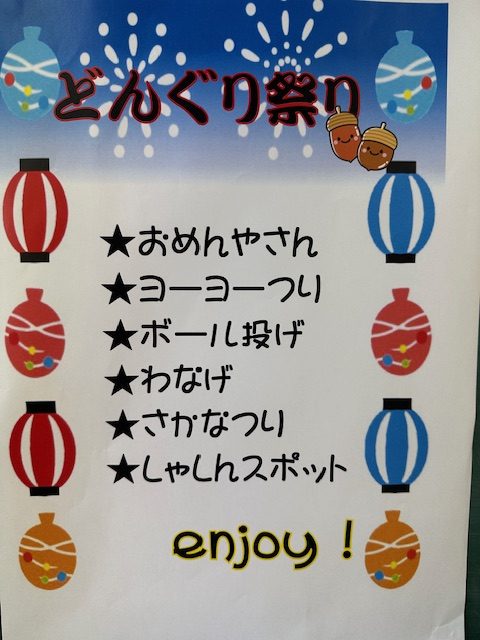 どんぐり祭り
★おめんやさん
★ヨーヨーつり
★ボール投げ
★わなげ
★さかなつり
★しゃしんスポット
enjoy！